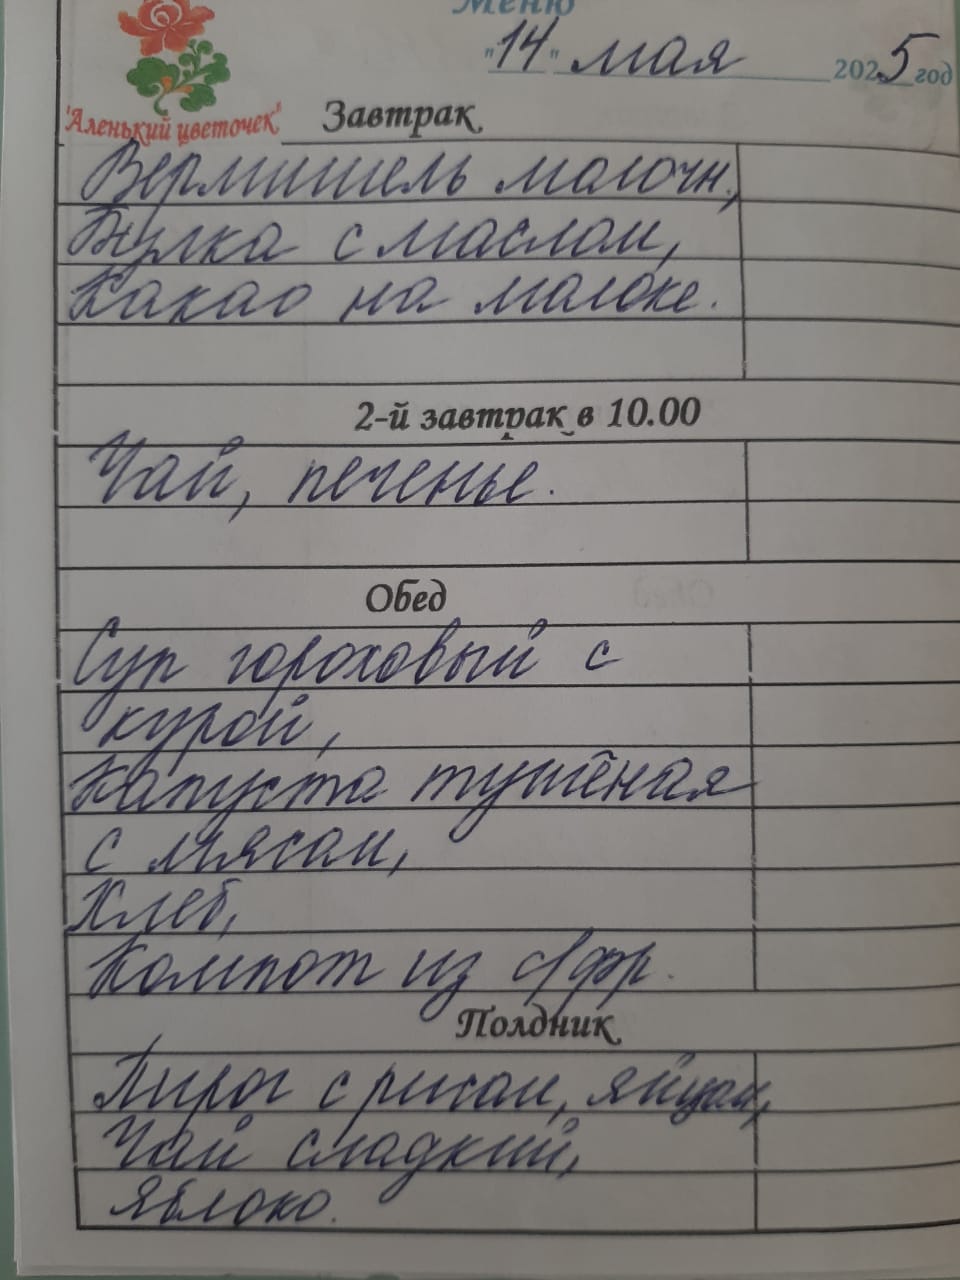 Меню
"14" мая 2025 год
"Аленький цветочек"
Завтрак
Вермишель молочн.,
Булка с маслом,
Какао на молоке.
2-й завтрак в 10.00
Чай, печенье.
Обед
Суп гороховый с
курой,
Капуста тушёная
с мясом,
Хлеб,
Компот из с/фр.
Полдник
Пирог с рисом, яйцом,
Чай сладкий,
Яблоко.